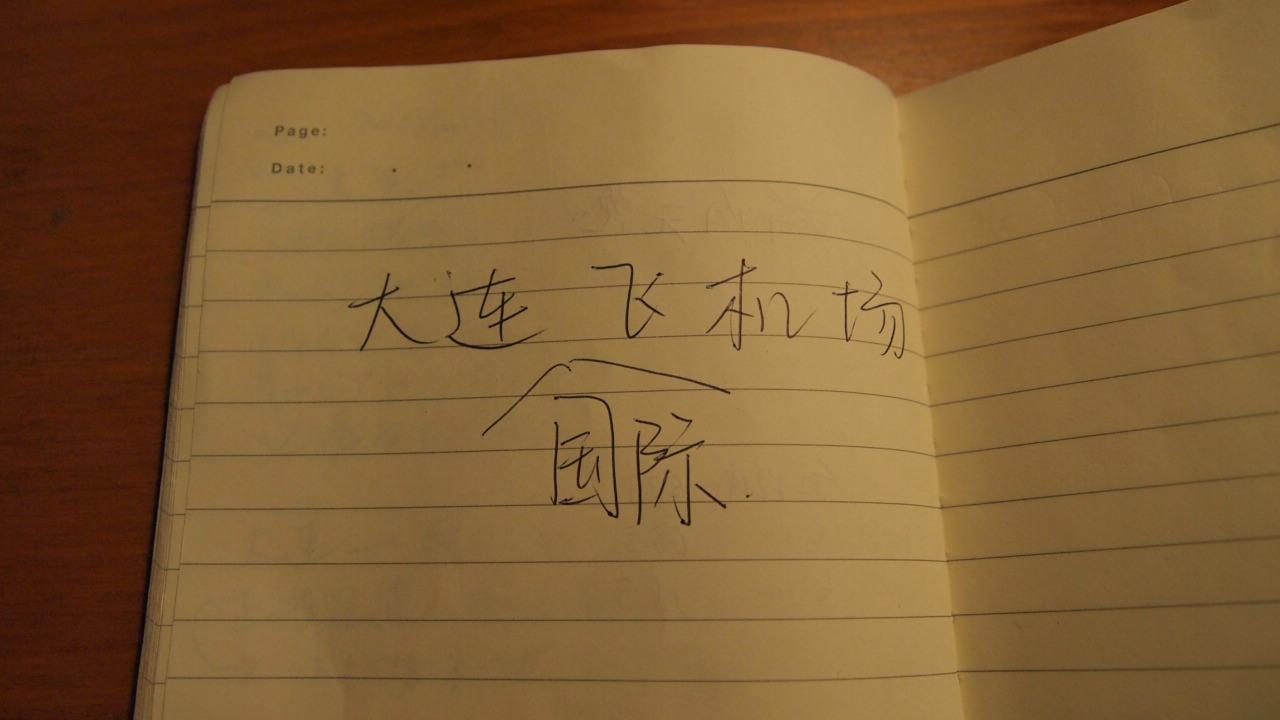 Page:
Date: . .
大连 飞机场
国际.